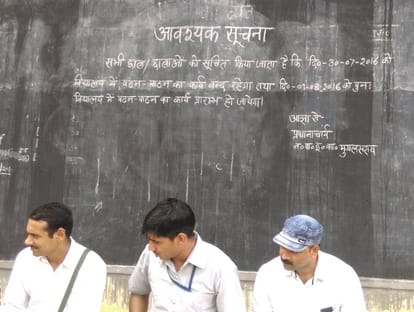 आवश्यक सूचना
सभी छात्र/छात्राओं को सूचित किया जाता है कि दि०-30-07-2016 को
विद्यालय में पठन-पाठन का कार्य बन्द रहेगा तथा दि०-01-08-2016 को पुनः
विद्यालय में पठन-पाठन का कार्य प्रारम्भ हो जायेगा।
आज्ञा से
प्रधानाचार्य
न०पा०इ०का० मुगलसराय